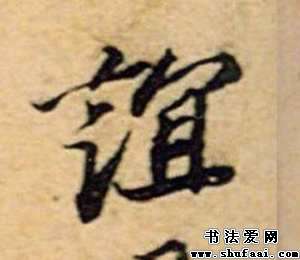 誼
书法爱网
www.shufaai.com